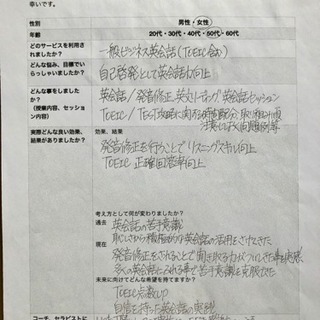 幸いです。
性別
男性・女性
年齢
20代・30代・40代・50代・60代
どのサービスを利用され
ましたか?
一般ビジネス英会話(TOEIC含む)
どんな悩み、目標でい
らっしゃいましたか?
自己啓発として英会話力向上
どんな事をしました
か?
(授業内容、セッション内容)
英会話/発音修正 英文リーディング 英会話セッション
TOEIC/TEST攻略に関する時間配分、取り組み順
注意しておく問題例等
実際どんな良い効果、
結果がありましたか?
効果、結果
発音修正を行うことでリスニングスキル向上
TOEIC 正確回答率向上
考え方として何が変わりましたか?
過去
英会話の苦手意識
現在
発音修正をされることで
苦手意識を克服できた
未来に向けてどんな希望を持てますか?
TOEIC点数UP
自信を持った英会話の実践
コーチ、セラピストに